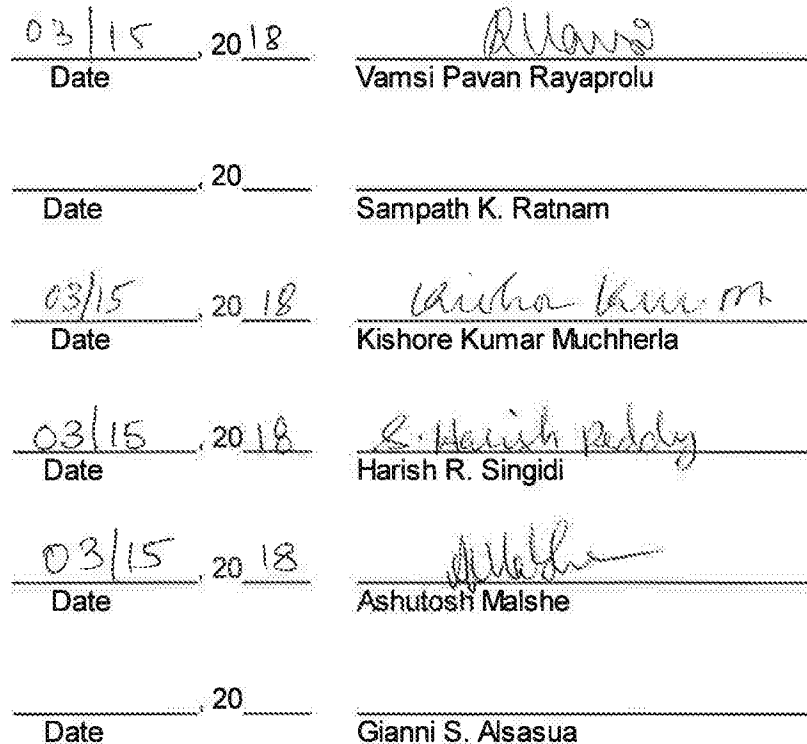 03/15, 2018
Date Vamsi Pavan Rayaprolu
, 20
Date Sampath K. Ratnam
03/15, 2018 Kishor Kum M
Date Kishore Kumar Muchherla
03/15, 2018 S. Harish Reddy
Date Harish R. Singidi
03/15, 2018 AMalshe
Date Ashutosh Malshe
, 20
Date Gianni S. Alsasua